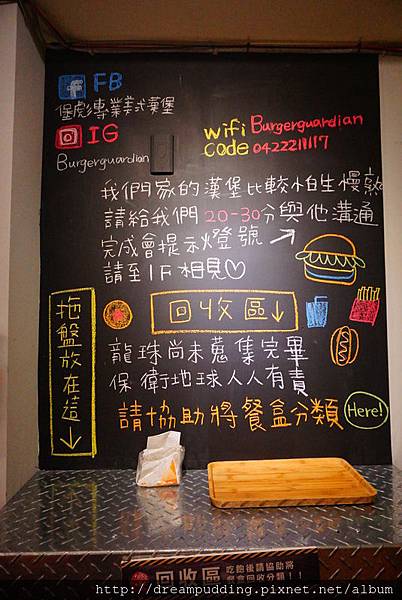 FB
堡彪專業美式漢堡
IG
Burgerguardian
wifi Burgerguardian
code 0422211117
我們家的漢堡比較怕生慢熟
請給我們20-30分與他溝通
完成會提示燈號
請至1F相見♡
拖盤放在這↓
回收區↓
龍珠尚未蒐集完畢
保衛地球人人有責
請協助將餐盒分類
Here!
回收區
吃飽後請協助將
餐盒回收分類!!
http://dreampudding.pixnet.net/album